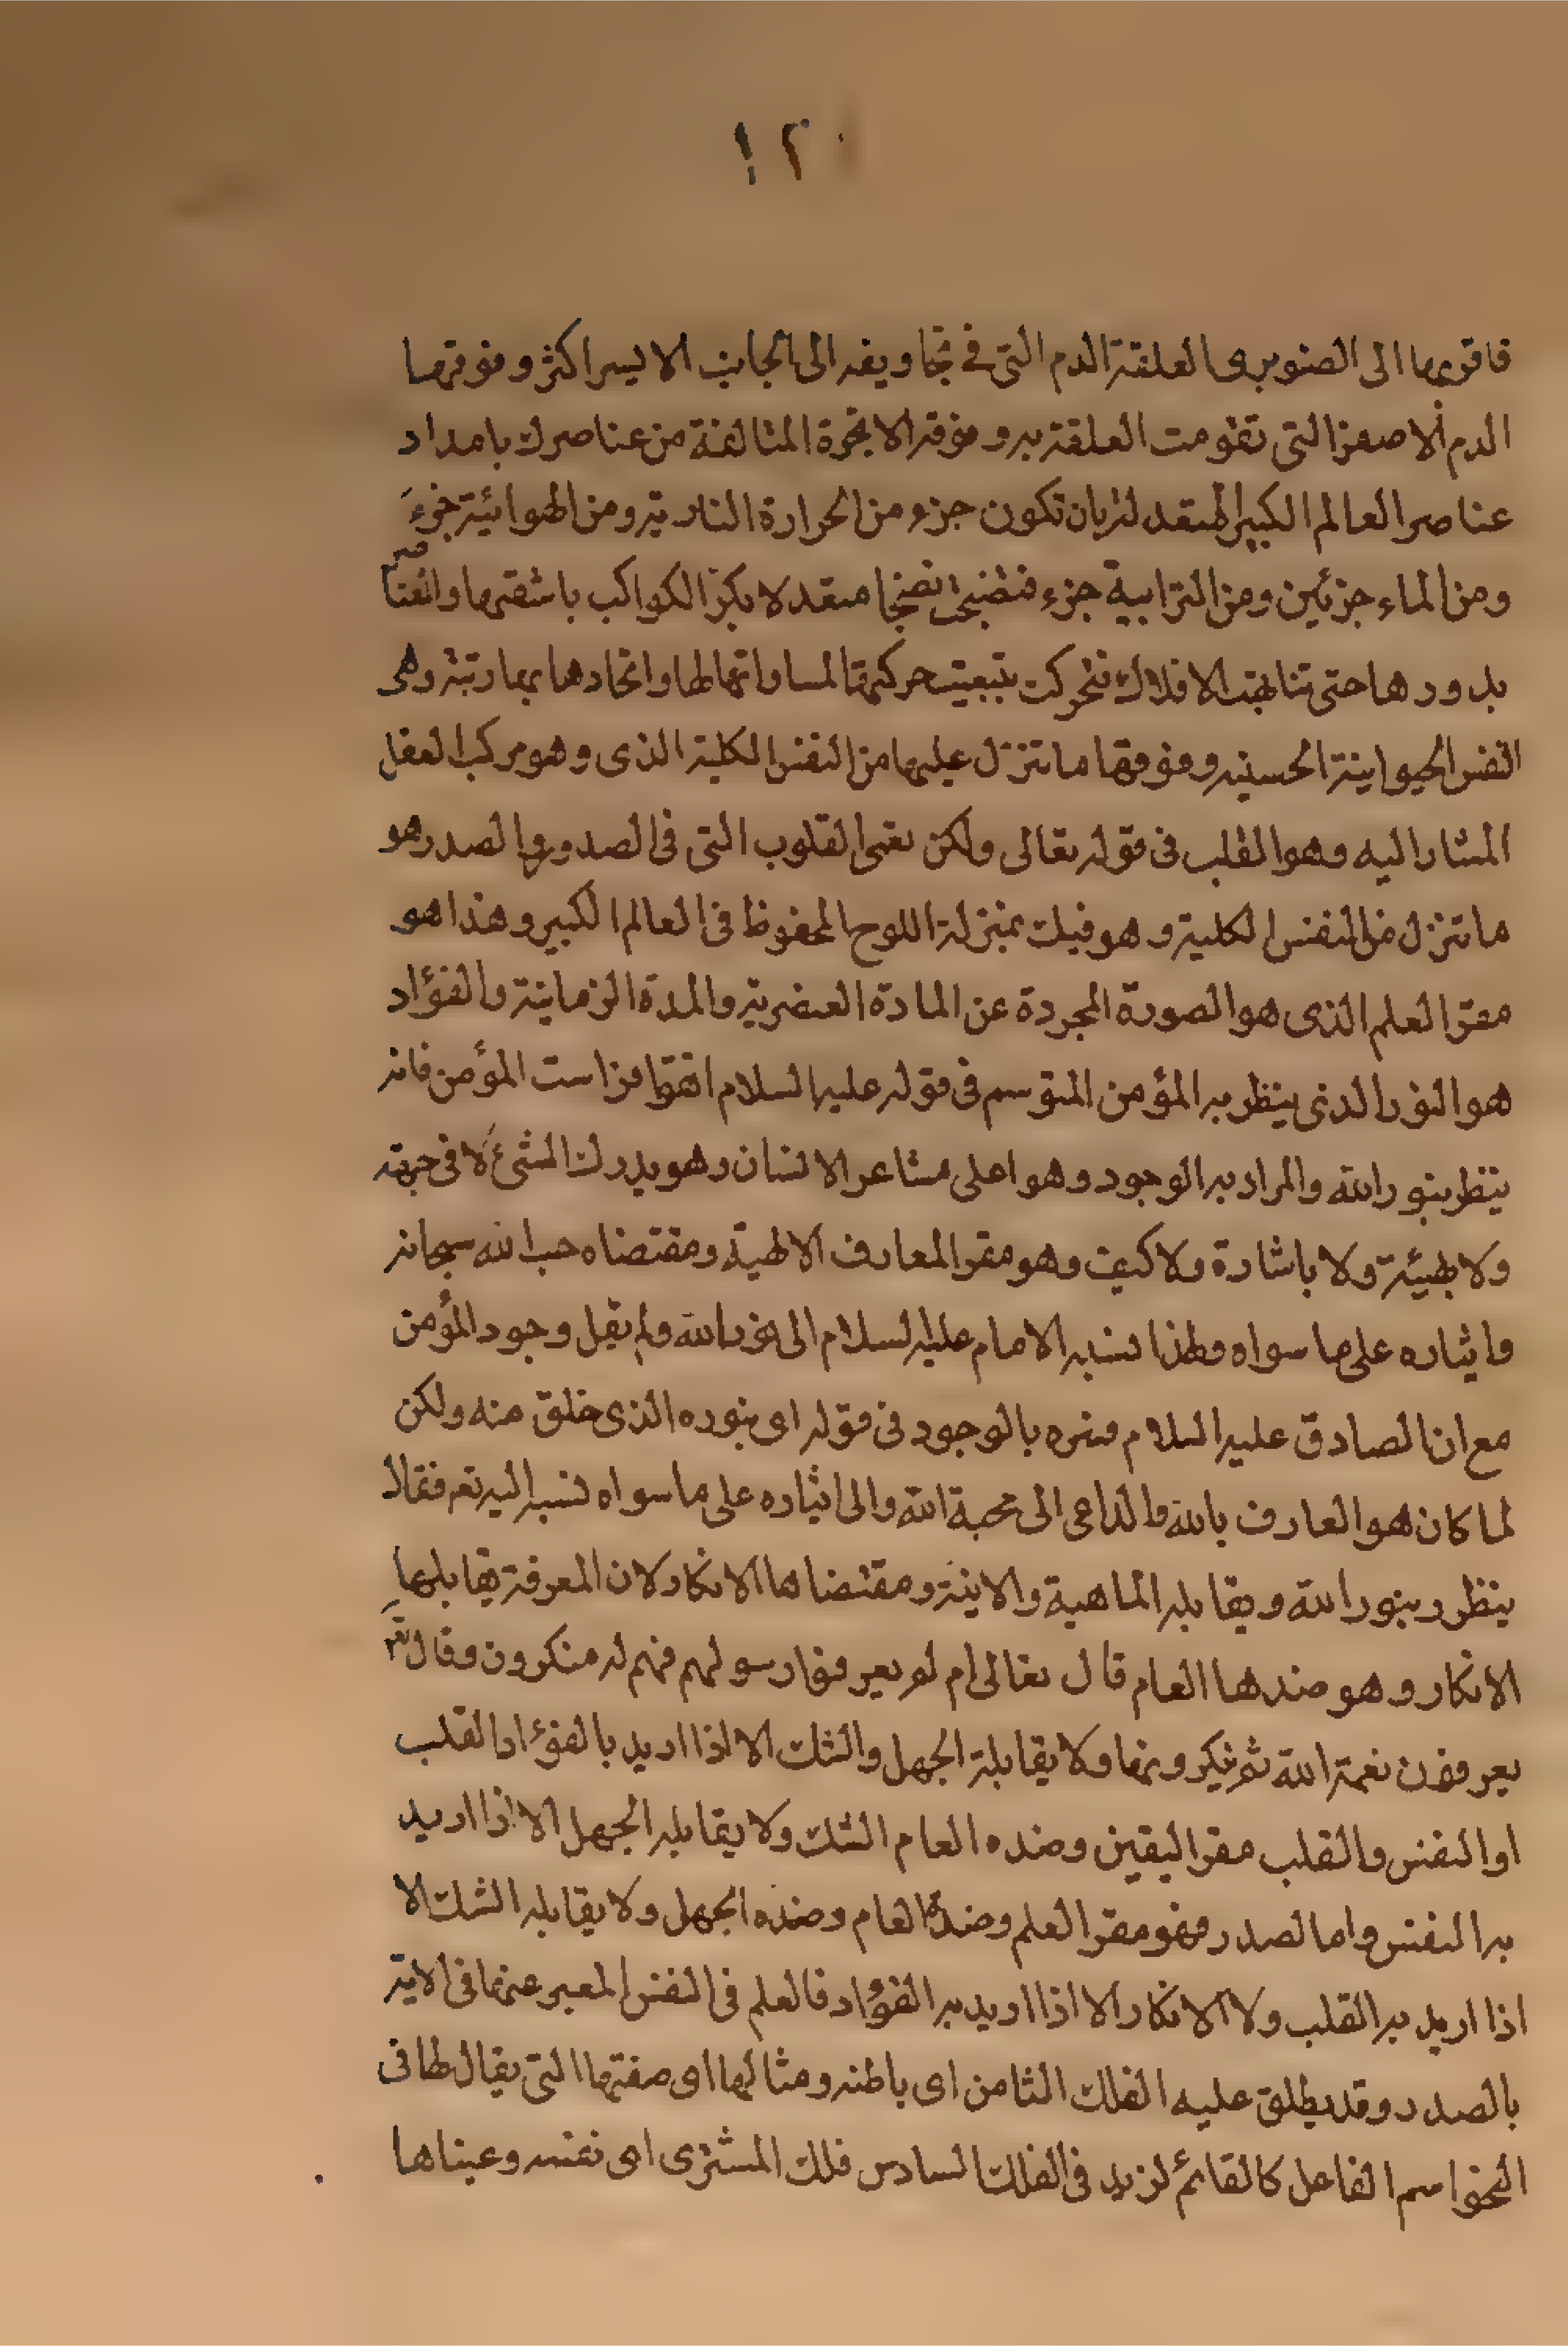 ١٢١
فاقربها الى الصنوبرى العلقة الدم التى فى تجاويفه الى الجانب الايسر اكثر وفوقها
الدم الاصفر التى تقومت العلقة به وفوقه الابخرة المتالفة من عناصرك بامداد
عناصر العالم الكبير المعتدلة بان تكون جزء من الحرارة النارية ومن الهوائية جزء
ومن الماء جزئين ومن الترابية جزء فنضجت نضجا معتدلا بكر الكواكب باشعتها و
بدورها حتى شابهت الافلاك فتحركت بتبعية حركتها لمساواتها لها واتحادها بها رتبة وهى
النفس الحيوانية الحسية وفوقها ما تنزل عليها من النفس الكلية الذى وهو مركب العقل
المشار اليه وهو القلب فى قوله تعالى ولكن تعمى القلوب التى فى الصدور والصدر هو
ما تنزل من النفس الكلية وهو فيك بمنزلة اللوح المحفوظ فى العالم الكبير وهذا هو
مقر العلم الذى هو الصورة المجردة عن المادة العنصرية والمدة الزمانية والفؤاد
هو النور الذى ينظر به المؤمن المتوسم فى قوله عليه السلام اتقوا فراست المؤمن فانه
ينظر بنور الله والمراد به الوجود وهو اعلى مشاعر الانسان وهو يدرك الشئ لا فى جهة
ولا بهيئة ولا باشارة ولا كيف وهو مقر المعارف الالهية ومقتضاه حب الله سبحانه
وايثاره على ما سواه ولهذا نسبه الامام عليه السلام الى نور الله ولم يقل وجود المؤمن
مع ان الصادق عليه السلام فسره بالوجود فى قوله اى بنوره الذى خلق منه ولكن
لما كان هو العارف بالله والداعى الى محبة الله والى ايثاره على ما سواه نسبه اليه تعه فقال
ينظر بنور الله ويقابله الماهية والانية ومقتضاها الانكار لان المعرفة يقابلها
الانكار وهو ضدها العام قال تعالى ام لم يعرفوا رسولهم فهم له منكرون وقال تعه
يعرفون نعمة الله ثم ينكرونها ولا يقابلة الجهل والشك الا اذا اريد بالفؤاد القلب
او النفس والقلب مقر اليقين وضده العام الشك ولا يقابله الجهل الا اذا اريد
به النفس واما الصدر فهو مقر العلم وضده العام وضده الجهل ولا يقابله الشك الا
اذا اريد به القلب ولا الانكار الا اذا اريد به الفؤاد فالعلم فى النفس المعبر عنها فى الاية
بالصدر وقد يطلق عليه الفلك الثامن اى باطنه ومثالها اى صفتها التى يقال لها فى
النحو اسم الفاعل كالقائم لزيد فى الفلك السادس فلك المشترى اى نفسه وعيناها